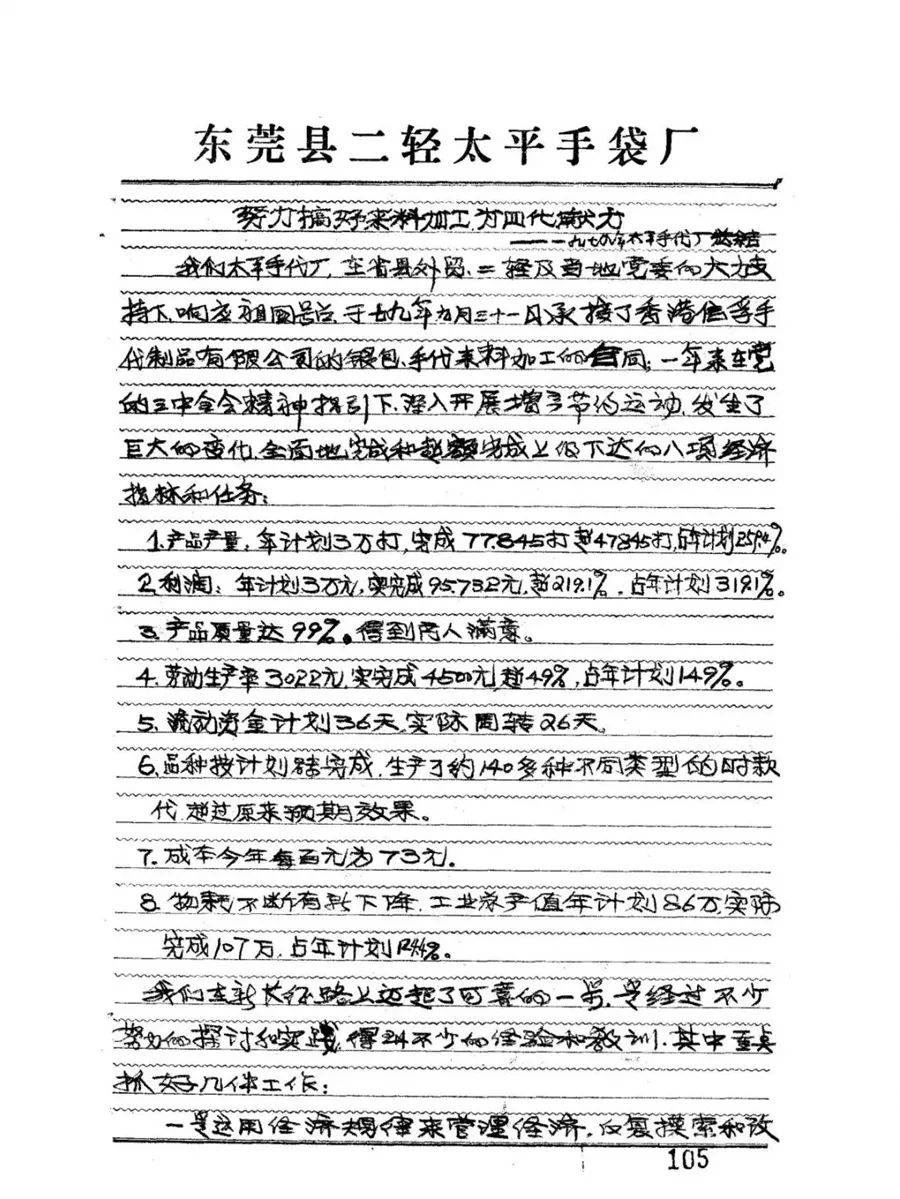 东莞县二轻太平手袋厂
努力搞好来料加工为四化献力
——一九七九年太平手代厂总结
我们太平手代厂，在省县外贸、二轻及当地党委的大力支
持下，响应祖国号召，于七九年九月三十一日承接了香港信孚手
代制品有限公司的银包、手代来料加工的合同；一年来在党
的三中全会精神指引下，深入开展增产节约运动，发生了
巨大的变化，全面地完成和超额完成上级下达的八项经济
指标和任务：
1.产品产量，年计划3万打，完成77.845打超47845打，占年计划259.4%。
2.利润：年计划3万元，实完成95.732元，超219.1%，占年计划319.1%。
3.产品质量达99%。得到商人满意。
4.劳动生产率3022元，实完成4500元，超49%，占年计划149%。
5.流动资金计划36天，实际周转26天。
6.品种按计划完成，生产了约140多种不同类型的时款
代，超过原来预期效果。
7.成本今年每百元为73元。
8.物耗不断有所下降，工业总产值年计划86万，实际
完成107万，占年计划124.4%。
我们在新长征路上迈起了可喜的一步，是经过不少
努力的探讨和实践，得到不少的经验和教训，其中重点
抓好几件工作：
一是运用经济规律来管理经济，反复摸索和改
105